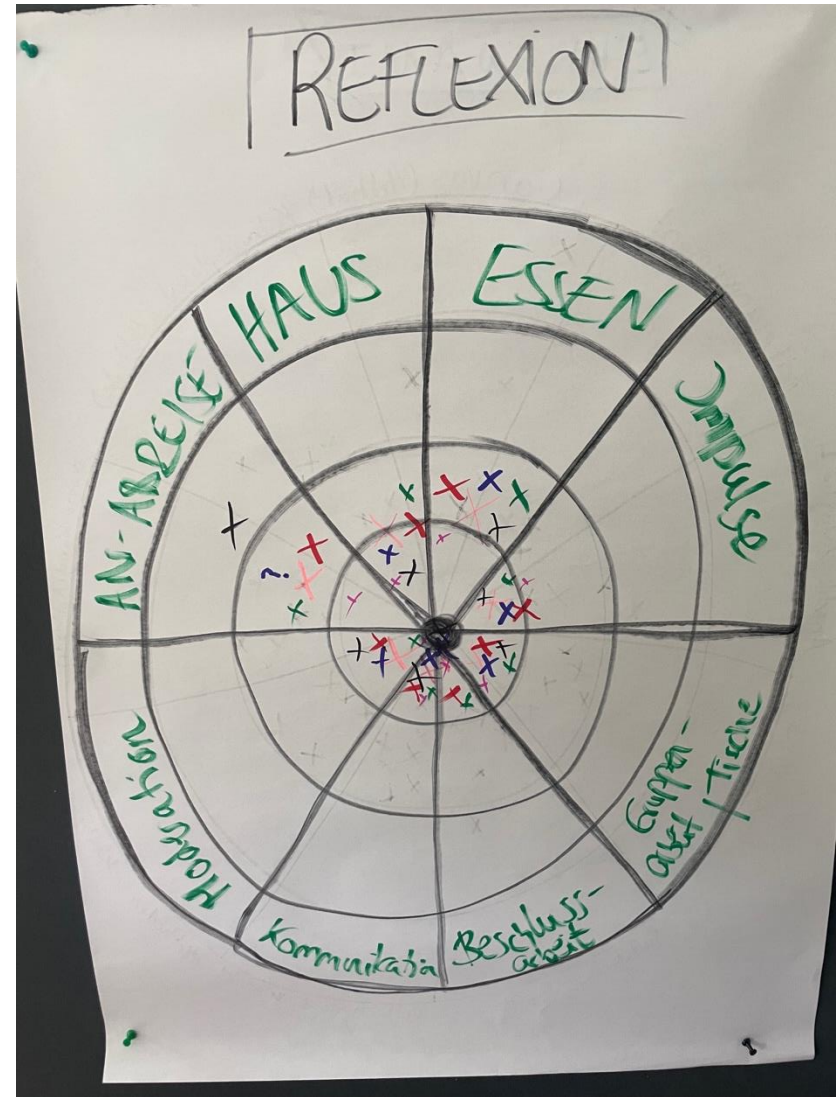 REFLEXION
HAUS
ESSEN
Impulse
Gruppen-
arbeit / Tische
Beschluss-
arbeit
Kommunikation
Moderation
AN-ABREISE
?